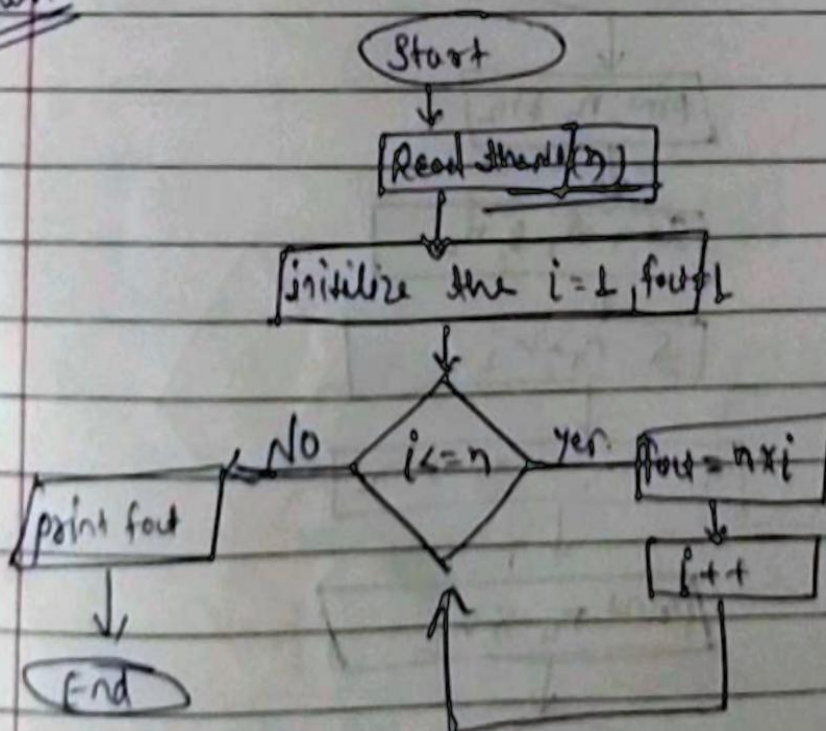 Start
Read (n)
initilize the i = 1, fact = 1
i <= n
No
yes
fact = n * i
print fact
i++
End